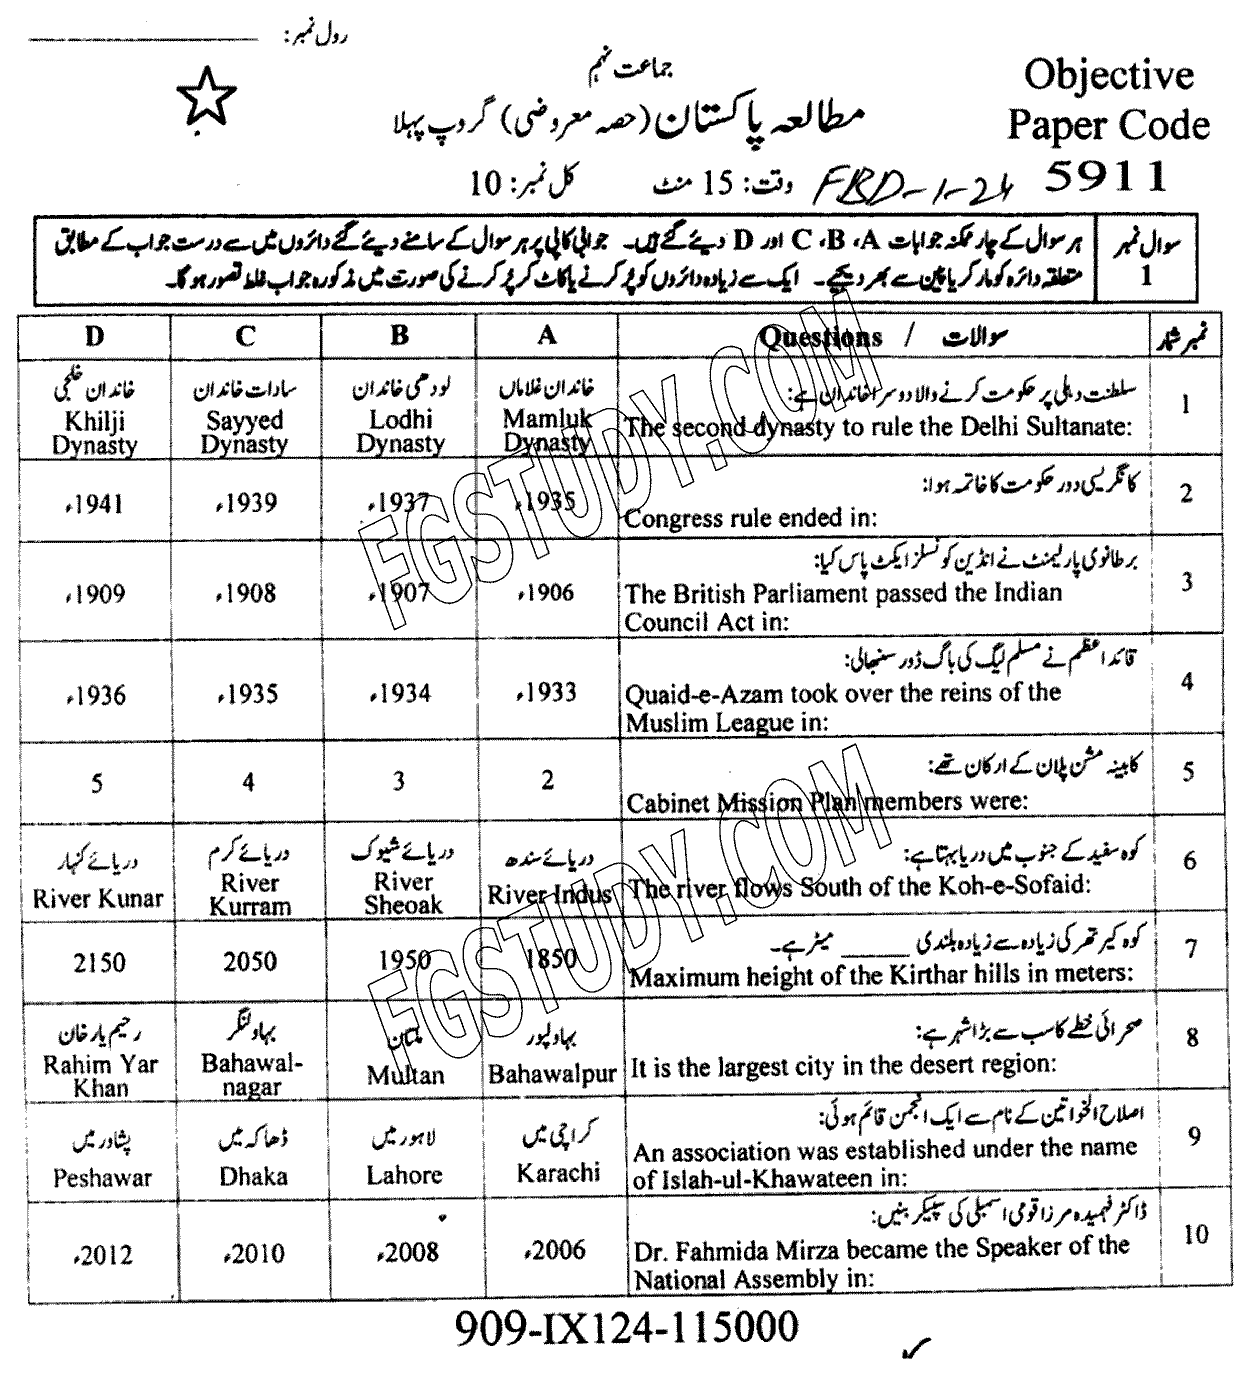 رول نمبر: ____________
جماعت نہم
مطالعہ پاکستان (حصہ معروضی) گروپ پہلا
وقت: 15 منٹ کل نمبر: 10
FBD-1-24
Objective
Paper Code
5911
سوال نمبر 1
ہر سوال کے چار ممکنہ جوابات A، B، C اور D دیئے گئے ہیں۔ جوابی کاپی پر ہر سوال کے سامنے دیئے گئے دائروں میں سے درست جواب کے مطابق
متعلقہ دائرہ کو مارکر یا پین سے بھر دیجئے۔ ایک سے زیادہ دائروں کو پُر کرنے یا کاٹ کر پُر کرنے کی صورت میں مذکورہ جواب غلط تصور ہو گا۔
نمبر شمار سوالات / Questions A B C D
1 سلطنت دہلی پر حکومت کرنے والا دوسرا خاندان ہے:
The second dynasty to rule the Delhi Sultanate:
خاندان غلاماں
Mamluk
Dynasty
لودھی خاندان
Lodhi
Dynasty
سادات خاندان
Sayyed
Dynasty
خاندان خلجی
Khilji
Dynasty
2 کانگریسی دور حکومت کا خاتمہ ہوا:
Congress rule ended in:
1935ء 1937ء 1939ء 1941ء
3 برطانوی پارلیمنٹ نے انڈین کونسلز ایکٹ پاس کیا:
The British Parliament passed the Indian
Council Act in:
1906ء 1907ء 1908ء 1909ء
4 قائداعظم نے مسلم لیگ کی باگ ڈور سنبھالی:
Quaid-e-Azam took over the reins of the
Muslim League in:
1933ء 1934ء 1935ء 1936ء
5 کابینہ مشن پلان کے ارکان تھے:
Cabinet Mission Plan members were:
2 3 4 5
6 کوہ سفید کے جنوب میں دریا بہتا ہے:
The river flows South of the Koh-e-Sofaid:
دریائے سندھ
River Indus
دریائے شیوک
River
Sheoak
دریائے کرم
River
Kurram
دریائے کنہار
River Kunar
7 کوہ کیرتھر کی زیادہ سے زیادہ بلندی _____ میٹر ہے۔
Maximum height of the Kirthar hills in meters:
1850 1950 2050 2150
8 صحرائی خطے کا سب سے بڑا شہر ہے:
It is the largest city in the desert region:
بہاولپور
Bahawalpur
ملتان
Multan
بہاولنگر
Bahawal-
nagar
رحیم یار خان
Rahim Yar
Khan
9 اصلاح الخواتین کے نام سے ایک انجمن قائم ہوئی:
An association was established under the name
of Islah-ul-Khawateen in:
کراچی میں
Karachi
لاہور میں
Lahore
ڈھاکہ میں
Dhaka
پشاور میں
Peshawar
10 ڈاکٹر فہمیدہ مرزا قومی اسمبلی کی سپیکر بنیں:
Dr. Fahmida Mirza became the Speaker of the
National Assembly in:
2006ء 2008ء 2010ء 2012ء
909-IX124-115000
FGSTUDY.COM
FGSTUDY.COM